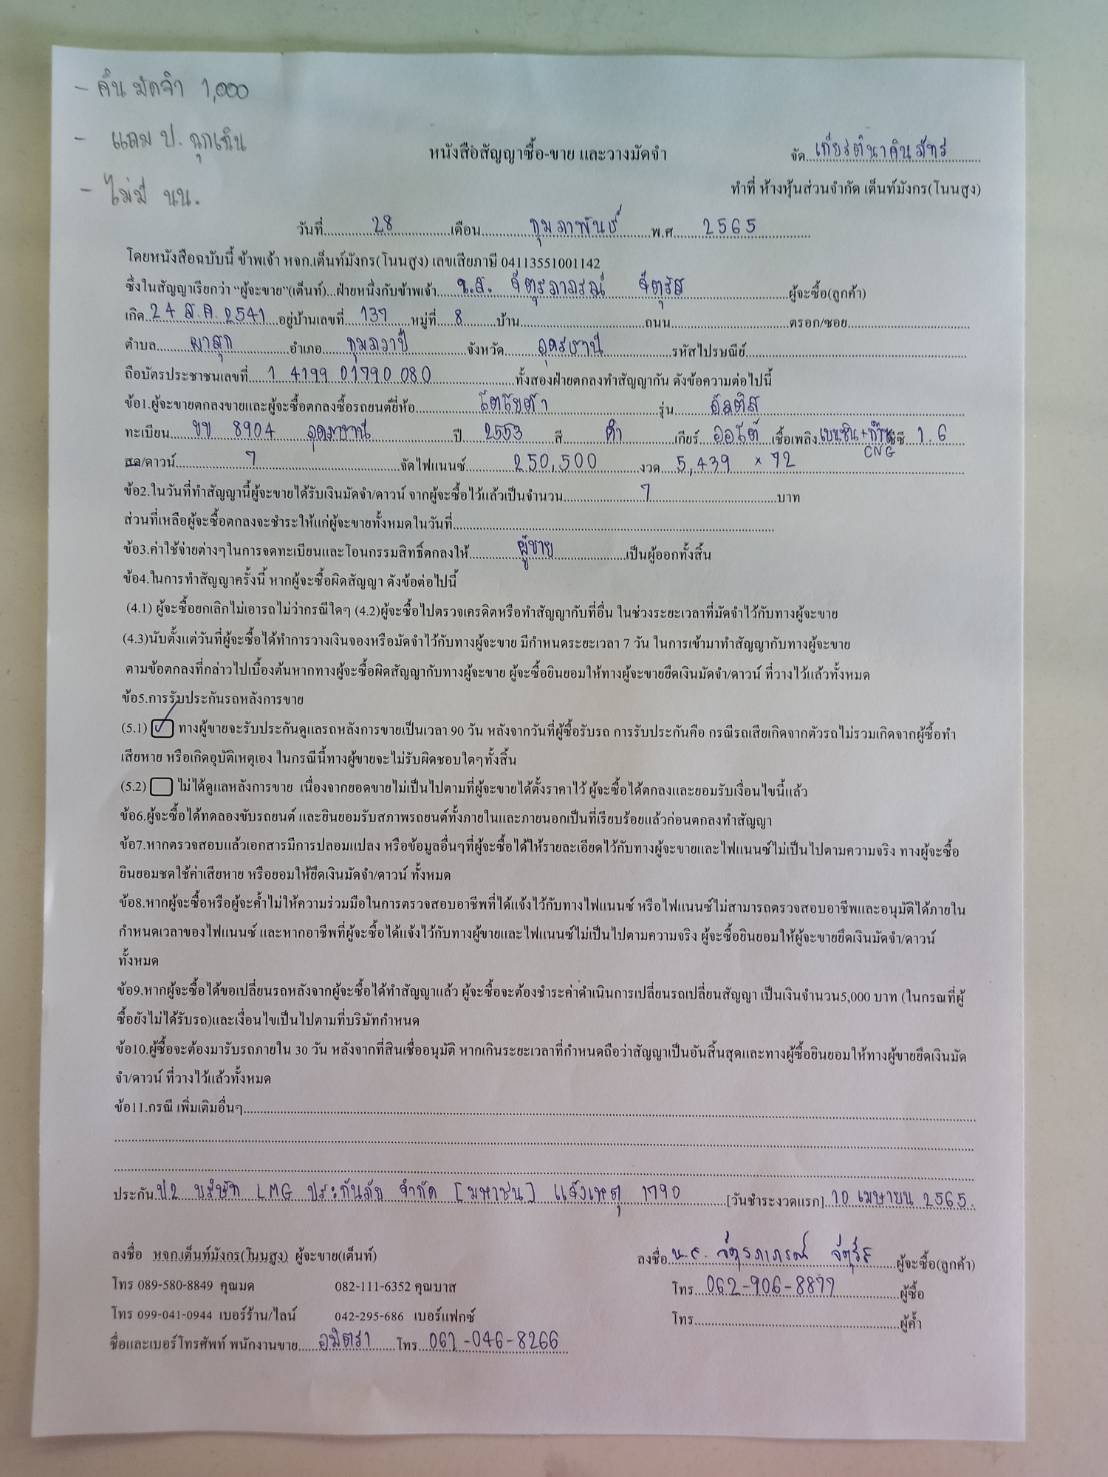 - คืน มัดจำ 1,000
- แถม ป. ฉุกเฉิน
- ไม่มี นน.
หนังสือสัญญาซื้อ-ขาย และวางมัดจำ
จัด เกียรตินาคินภัทร
ทำที่ ห้างหุ้นส่วนจำกัด เต็นท์มังกร(โนนสูง)
วันที่ 28 เดือน กุมภาพันธ์ พ.ศ. 2565
โดยหนังสือฉบับนี้ ข้าพเจ้า หจก.เต็นท์มังกร(โนนสูง) เลขเสียภาษี 04113551001142
ซึ่งในสัญญาเรียกว่า "ผู้จะขาย"(เต็นท์)...ฝ่ายหนึ่งกับข้าพเจ้า น.ส. จัตุรภาภรณ์ จัตุรัส ผู้จะซื้อ(ลูกค้า)
เกิด 24 ส.ค. 2541 อยู่บ้านเลขที่ 137 หมู่ที่ 8 บ้าน ถนน ตรอก/ซอย
ตำบล ผาสุก อำเภอ กุมภวาปี จังหวัด อุดรธานี รหัสไปรษณีย์
ถือบัตรประชาชนเลขที่ 1 4199 01790 080 ทั้งสองฝ่ายตกลงทำสัญญากัน ดังข้อความต่อไปนี้
ข้อ1.ผู้จะขายตกลงขายและผู้จะซื้อตกลงซื้อรถยนต์ยี่ห้อ โตโยต้า รุ่น อัลติส
ทะเบียน ขข 8904 อุดรธานี ปี 2553 สี ดำ เกียร์ ออโต้ เชื้อเพลิง เบนซิน+ก๊าซ CNG ซีซี 1.6
สด/ดาวน์ 7 จัดไฟแนนซ์ 250,500 งวด 5,439 × 72
ข้อ2.ในวันที่ทำสัญญานี้ผู้จะขายได้รับเงินมัดจำ/ดาวน์ จากผู้จะซื้อไว้แล้วเป็นจำนวน 7 บาท
ส่วนที่เหลือผู้จะซื้อตกลงจะชำระให้แก่ผู้จะขายทั้งหมดในวันที่
ข้อ3.ค่าใช้จ่ายต่างๆในการจดทะเบียนและโอนกรรมสิทธิ์ตกลงให้ ผู้ขาย เป็นผู้ออกทั้งสิ้น
ข้อ4.ในการทำสัญญาครั้งนี้ หากผู้จะซื้อผิดสัญญา ดังข้อต่อไปนี้
(4.1) ผู้จะซื้อยกเลิกไม่เอารถไม่ว่ากรณีใดๆ (4.2)ผู้จะซื้อไปตรวจเครดิตหรือทำสัญญากับที่อื่น ในช่วงระยะเวลาที่มัดจำไว้กับทางผู้จะขาย
(4.3)นับตั้งแต่วันที่ผู้จะซื้อได้ทำการวางเงินจองหรือมัดจำไว้กับทางผู้จะขาย มีกำหนดระยะเวลา 7 วัน ในการเข้ามาทำสัญญากับทางผู้จะขาย
ตามข้อตกลงที่กล่าวไปเบื้องต้นหากทางผู้จะซื้อผิดสัญญากับทางผู้จะขาย ผู้จะซื้อยินยอมให้ทางผู้จะขายยึดเงินมัดจำ/ดาวน์ ที่วางไว้แล้วทั้งหมด
ข้อ5.การรับประกันรถหลังการขาย
(5.1) ทางผู้ขายจะรับประกันดูแลรถหลังการขายเป็นเวลา 90 วัน หลังจากวันที่ผู้ซื้อรับรถ การรับประกันคือ กรณีรถเสียเกิดจากตัวรถไม่รวมเกิดจากผู้ซื้อทำ
เสียหาย หรือเกิดอุบัติเหตุเอง ในกรณีนี้ทางผู้ขายจะไม่รับผิดชอบใดๆทั้งสิ้น
(5.2) ไม่ได้ดูแลหลังการขาย เนื่องจากยอดขายไม่เป็นไปตามที่ผู้จะขายได้ตั้งราคาไว้ ผู้จะซื้อได้ตกลงและยอมรับเงื่อนไขนี้แล้ว
ข้อ6.ผู้จะซื้อได้ทดลองขับรถยนต์ และยินยอมรับสภาพรถยนต์ทั้งภายในและภายนอกเป็นที่เรียบร้อยแล้วก่อนตกลงทำสัญญา
ข้อ7.หากตรวจสอบแล้วเอกสารมีการปลอมแปลง หรือข้อมูลอื่นๆที่ผู้จะซื้อได้ให้รายละเอียดไว้กับทางผู้จะขายและไฟแนนซ์ไม่เป็นไปตามความจริง ทางผู้จะซื้อ
ยินยอมชดใช้ค่าเสียหาย หรือยอมให้ยึดเงินมัดจำ/ดาวน์ ทั้งหมด
ข้อ8.หากผู้จะซื้อหรือผู้จะค้ำไม่ให้ความร่วมมือในการตรวจสอบอาชีพที่ได้แจ้งไว้กับทางไฟแนนซ์ หรือไฟแนนซ์ไม่สามารถตรวจสอบอาชีพและอนุมัติได้ภายใน
กำหนดเวลาของไฟแนนซ์ และหากอาชีพที่ผู้จะซื้อได้แจ้งไว้กับทางผู้ขายและไฟแนนซ์ไม่เป็นไปตามความจริง ผู้จะซื้อยินยอมให้ผู้จะขายยึดเงินมัดจำ/ดาวน์
ทั้งหมด
ข้อ9.หากผู้จะซื้อได้ขอเปลี่ยนรถหลังจากผู้จะซื้อได้ทำสัญญาแล้ว ผู้จะซื้อจะต้องชำระค่าดำเนินการเปลี่ยนรถเปลี่ยนสัญญา เป็นเงินจำนวน5,000 บาท (ในกรณที่ผู้
ซื้อยังไม่ได้รับรถ)และเงื่อนไขเป็นไปตามที่บริษัทกำหนด
ข้อ10.ผู้ซื้อจะต้องมารับรถภายใน 30 วัน หลังจากที่สินเชื่ออนุมัติ หากเกินระยะเวลาที่กำหนดถือว่าสัญญาเป็นอันสิ้นสุดและทางผู้ซื้อยินยอมให้ทางผู้ขายยึดเงินมัด
จำ/ดาวน์ ที่วางไว้แล้วทั้งหมด
ข้อ11.กรณี เพิ่มเติมอื่นๆ
ประกัน ป2 บริษัท LMG ประกันภัย จำกัด [มหาชน] แจ้งเหตุ 1790 [วันชำระงวดแรก] 10 เมษายน 2565.
ลงชื่อ หจก.เต็นท์มังกร(โนนสูง) ผู้จะขาย(เต็นท์)
ลงชื่อ น.ส. จัตุรภาภรณ์ จัตุรัส ผู้จะซื้อ(ลูกค้า)
โทร 089-580-8849 คุณมด 082-111-6352 คุณบาส
โทร 062-906-8877 ผู้ซื้อ
โทร 099-041-0944 เบอร์ร้าน/ไลน์ 042-295-686 เบอร์แฟกซ์
โทร ผู้ค้ำ
ชื่อและเบอร์โทรศัพท์ พนักงานขาย อมิตรา โทร 061-046-8266